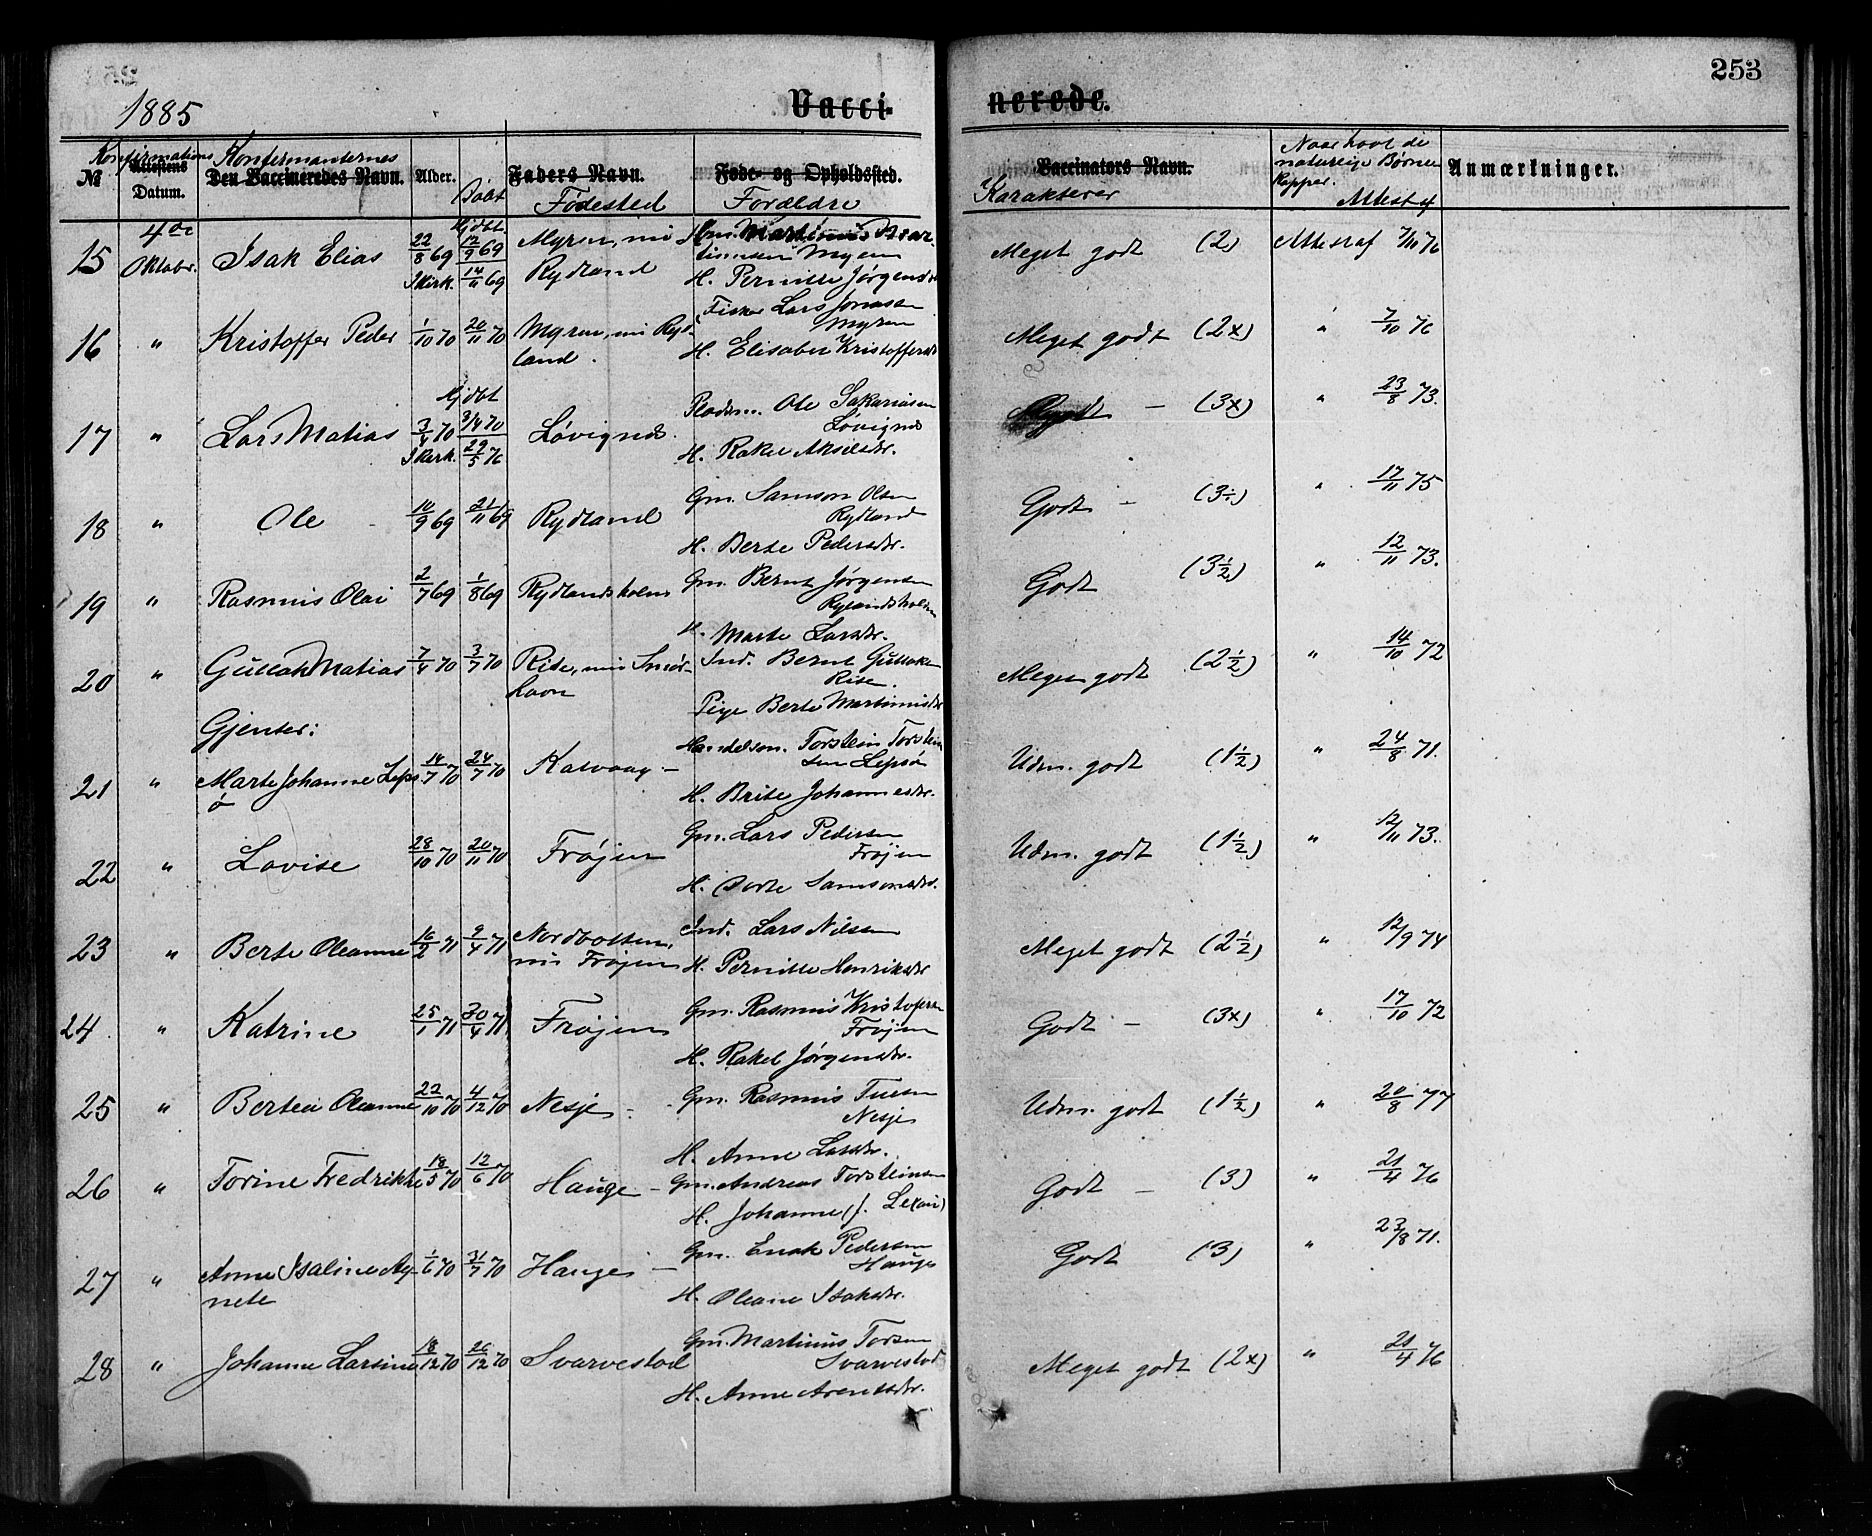 253
1885
Vacci-
nerede.
Konfirmations
Konfirmanternes
Naar havt de
naturlige Børne
kopper.
№
Attestens
Datum.
Den Vaccineredes Navn.
Alder.
Døbt
Faders Navn.
Fødested
Føde- og Opholdssted.
Forældre
Vaccinators Navn.
Karakterer
Attest af
Anmærkninger.
15
4de
Oktober.
Isak Elias
22/8 69
Hjdbt.
12/9 69
I Kirk.
14/11 69
Myren, mi
Rydland
H. Pernille Jørgensdr
Meget godt (2)
Attest af 7/10 76
16 "
Kristoffer Peder
1/10 70
20/11 70
Myren, mi Ryd-
land.
Fisker Lars Jonassen
Myren
H. Elisabet Kristoffersdr
Meget godt (2x)
" 7/10 76
17 "
Lars Matias
3/4 70
Hjdbt
3/4 70
I Kirk. 29/5 70
Løvignes.
Pladsm. Ole Sakariasen
Løvignes
H. Rakel Akselsdr.
— (3x)
" 23/8 73.
18 "
Ole
10/9 69
21/11 69
Rydland
Gm. Samson Olsen
Rydland
H. Berte Pedersdr.
Godt — (3÷)
" 17/11 75
19 "
Rasmus Olai
2/7 69
1/8 69
Rydlandsholm
Gm. Bernt Jørgensen
Rylandsholm
H. Marte Larsdr.
Godt (3½)
" 12/11 73.
20 "
Gullak Matias
7/4 70
3/7 70
Rise, mi Smør-
havn
Ind. Bernt Gullaksen
Rise.
Pige Berte Martinusdr
Meget godt (2½)
" 14/10 72
Gjenter:
21 "
Marte Johanne Leps
ø
14/7 70
24/7 70
Kalvaag —
Handelsm. Torstein Torstein
sen Lepsø
H. Brite Johannesdr.
Udm. godt (1½)
" 24/8 71.
22 "
Lovise
28/10 70
20/11 70
Frøjen
Gm. Lars Pedersen
Frøjen
H. Dorte Samsonsdr.
Udm. godt (1½)
" 12/11 73.
23 "
Berte Oleanne
16/2 71
9/4 71
Nordbotten,
mi Frøjen
Ind. Lars Nilsen
H. Pernille Henriksdr
Meget godt (2½)
" 12/9 74
24 "
Katrine
25/1 71
30/4 71
Frøjen
Gm. Rasmus Kristofersen
Frøjen
H. Rakel Jørgensdr.
Godt — (3x)
" 17/10 72
25 "
Bertea Oleanne
22/10 70
4/12 70
Nesje -
Gm. Rasmus Tuesen
Nesje
H. Anne Larsdr.
Udm. godt (1½)
" 20/8 77
26 "
Torine Fredrikke
18/5 70
12/6 70
Hauge —
Gm. Andreas Torsteinsen
H. Johanne (f. Lexau)
Godt — (3)
" 21/4 76
27 "
Anne Isaline Ag-
nete
1/6 70
31/7 70
Hauge —
Gm. Enok Pedersen
Hauge
H. Oleane Isaksdr.
Godt (3)
" 23/8 71.
28 "
Johanne Larsine
18/12 70
26/12 70
Svarvestad
Gm. Martinus Torsen
Svarvestad
H. Anne Arentsdr.
Meget godt (2x)
" 21/4 76